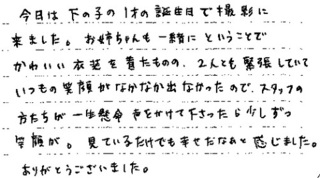 今日は下の子の1才の誕生日で撮影に
来ました。お姉ちゃんも一緒にということで
かわいい衣装を着たものの、2人とも緊張していて
いつもの笑顔がなかなか出なかったので、スタッフの
方たちが一生懸命声をかけて下さったら少しずつ
笑顔が。見ているだけでも幸せだなぁと感じました。
ありがとうございました。